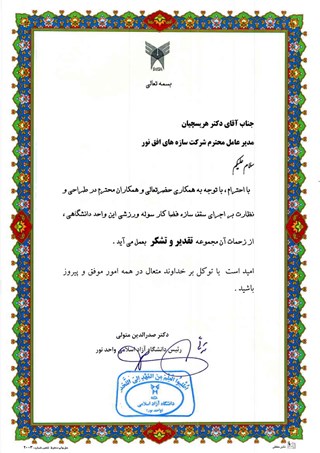 بسمه تعالی
جناب آقای دکتر هریسچیان
مدیر عامل محترم شرکت سازه های افق نور
سلام علیکم
با احترام، با توجه به همکاری حضرتعالی و همکاران محترم در طراحی و
نظارت بر اجرای سقف سازه فضا کار سوله ورزشی این واحد دانشگاهی،
از زحمات آن مجموعه تقدیر و تشکر بعمل می آید.
امید است با توکل بر خداوند متعال در همه امور موفق و پیروز
باشید.
دکتر صدرالدین متولی
رئیس دانشگاه آزاد اسلامی واحد نور
دانشگاه آزاد اسلامی